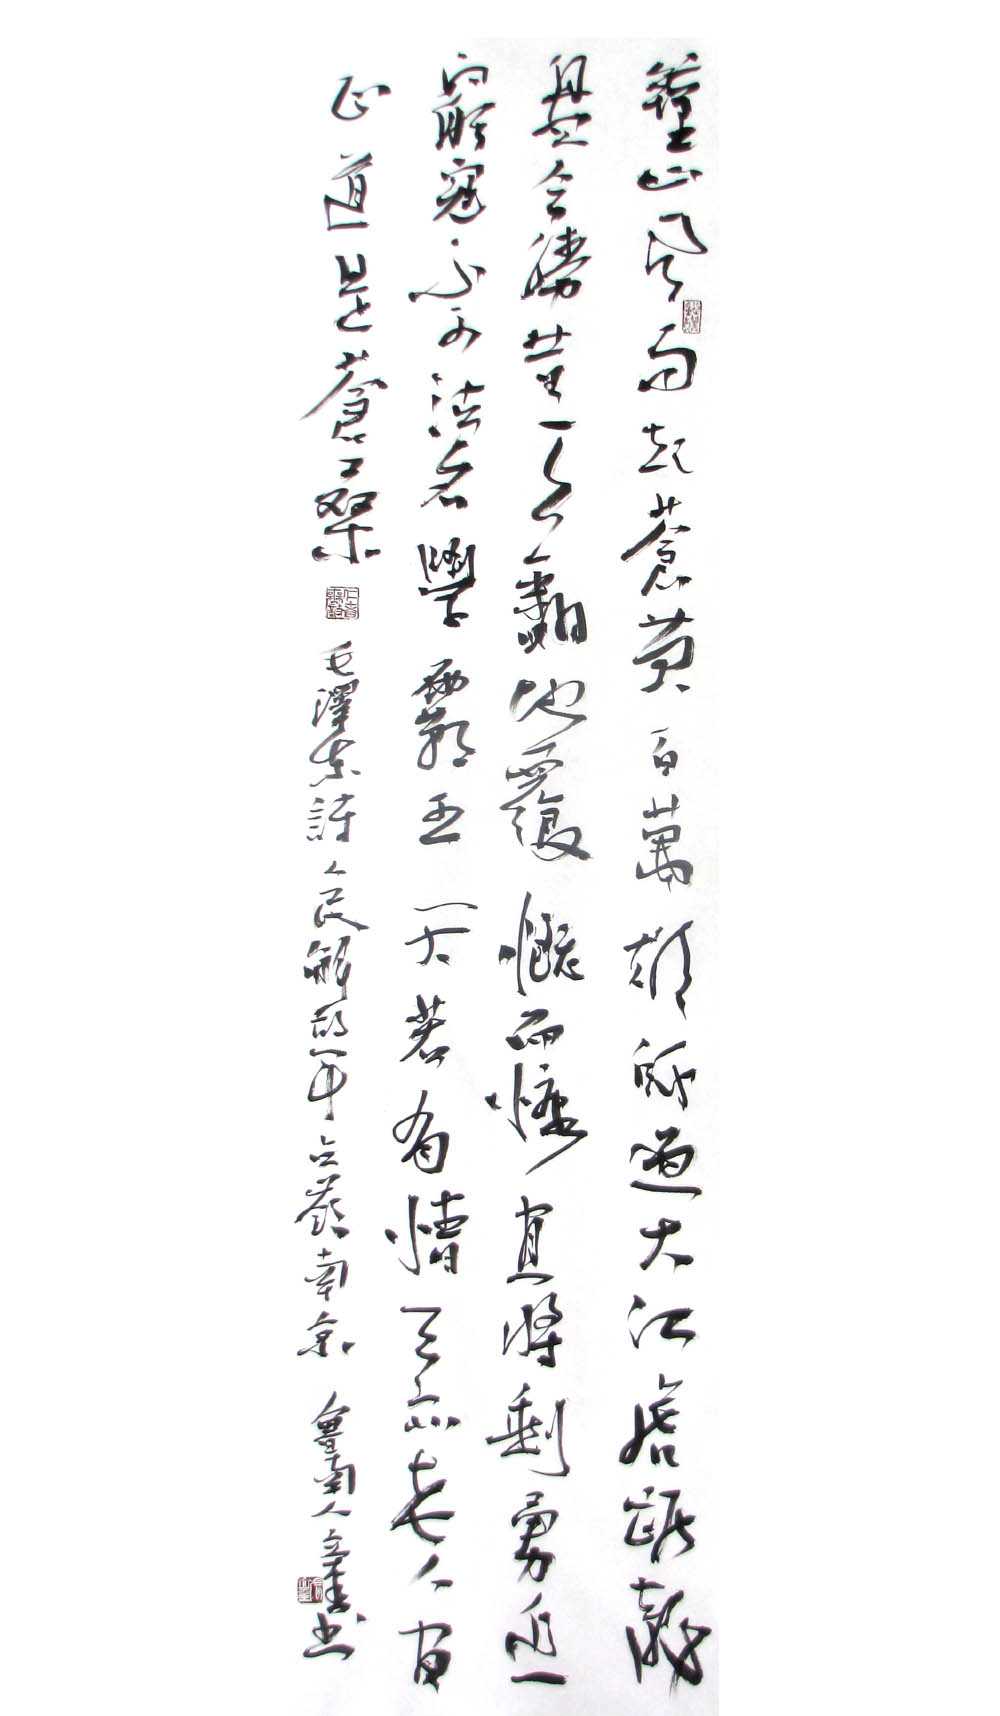 鍾山風雨起蒼黃百萬雄師過大江虎踞龍
盤今勝昔天翻地覆慨而慷宜將剩勇追
窮寇不可沽名學霸王天若有情天亦老人間
正道是蒼桑 毛澤東詩人民解放軍占領南京 魯南人書